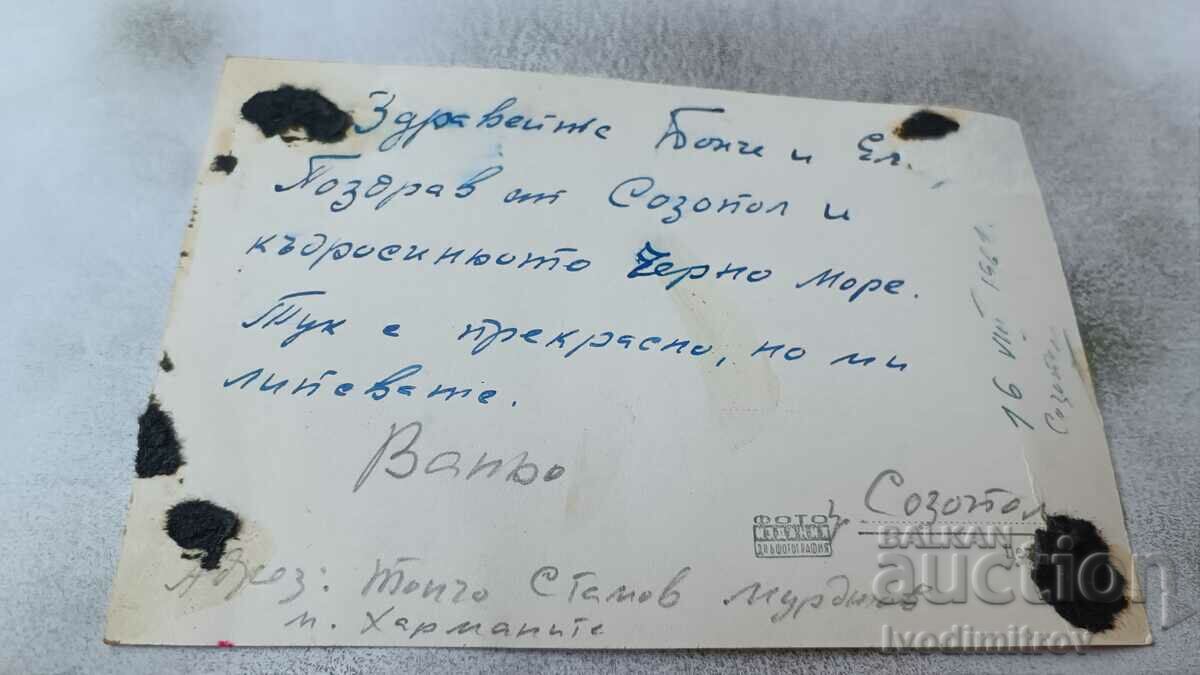 Здравейте Бонче и Ел.,
Поздрав от Созопол и
къдросиньото Черно море.
Тук е прекрасно, но ми
липсвате.
Ваньо
16 VIII 1961.
Созопол
Созопол
ФОТО
ИЗДАНИЯ
ДКФОТОГРАФИЯ
Адрес: Тончо Стамов
м. Харманите
BALKAN
auction
ivodimitrov